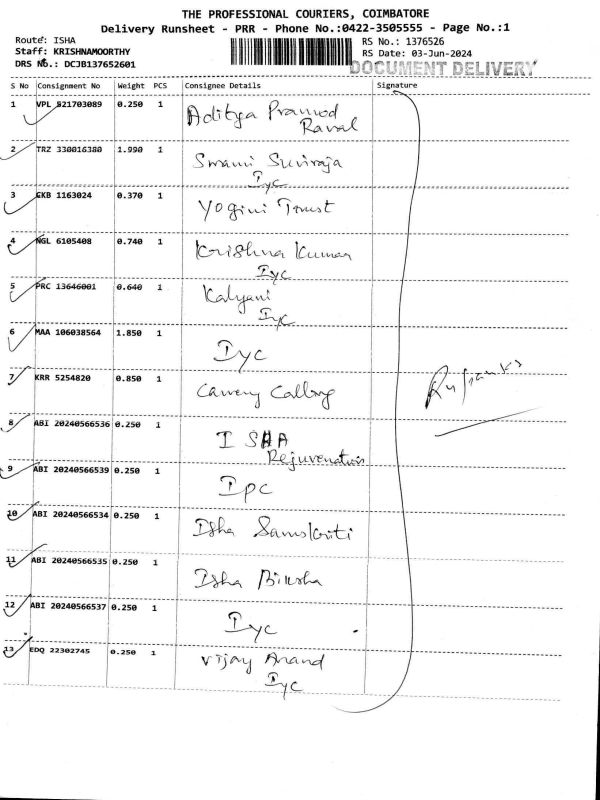 THE PROFESSIONAL COURIERS, COIMBATORE
Delivery Runsheet - PRR - Phone No.:0422-3505555 - Page No.:1
Route: ISHA
RS No.: 1376526
Staff: KRISHNAMOORTHY
RS Date: 03-Jun-2024
DRS No.: DCJB137652601
DOCUMENT DELIVERY
S No Consignment No Weight PCS Consignee Details Signature
1 VPL 521703089 0.250 1 Aditya Pramod
Raval
2 TRZ 330016380 1.990 1 Swami Suviraja
Iyc
3 GKB 1163024 0.370 1 Yogini Trust
4 NGL 6105408 0.740 1 Krishna Kumar
Iyc
5 PRC 13646001 0.640 1 Kalyani
Iyc
6 MAA 106038564 1.850 1 Iyc
7 KRR 5254820 0.850 1 Cauvery Calling
8 ABI 20240566536 0.250 1 ISHA
Rejuvenation
9 ABI 20240566539 0.250 1 Ipc
10 ABI 20240566534 0.250 1 Isha Samskriti
11 ABI 20240566535 0.250 1 Isha Biksha
12 ABI 20240566537 0.250 1 Iyc
13 EDQ 22302745 0.250 1 Vijay Anand
Iyc